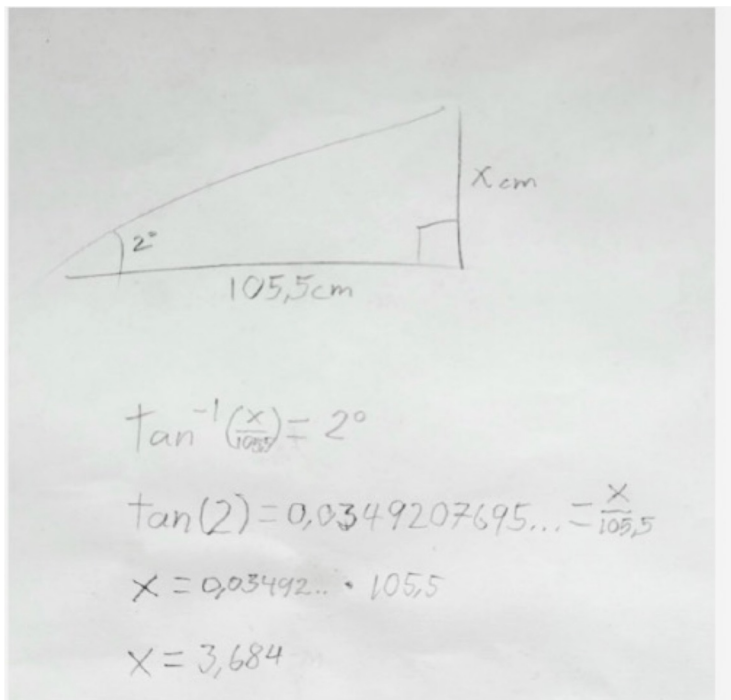 x cm
2°
105,5cm
tan⁻¹(x/105,5) = 2°
tan(2) = 0,0349207695... = x/105,5
x = 0,03492.. · 105,5
x = 3,684